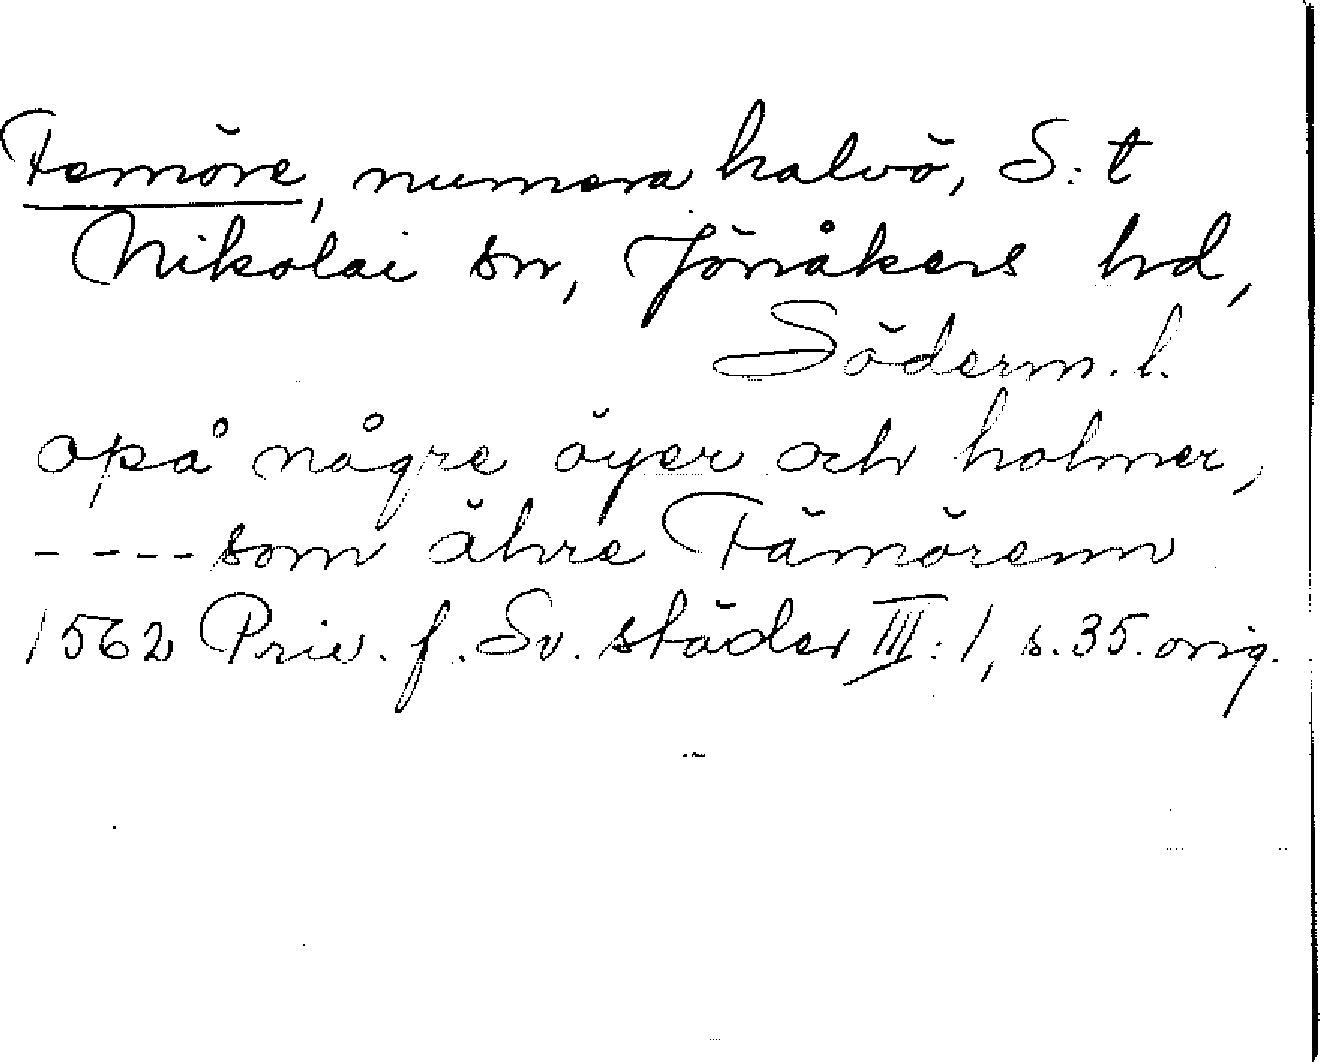 Femöre, numera halvö, S:t
Nikolai sn, Jönåkers hd,
Söderm. l.
opå någre öyer och holmer,
---- som ähre Fämörenn
1562 Priv. f. Sv. städer III:1, s. 35. orig.